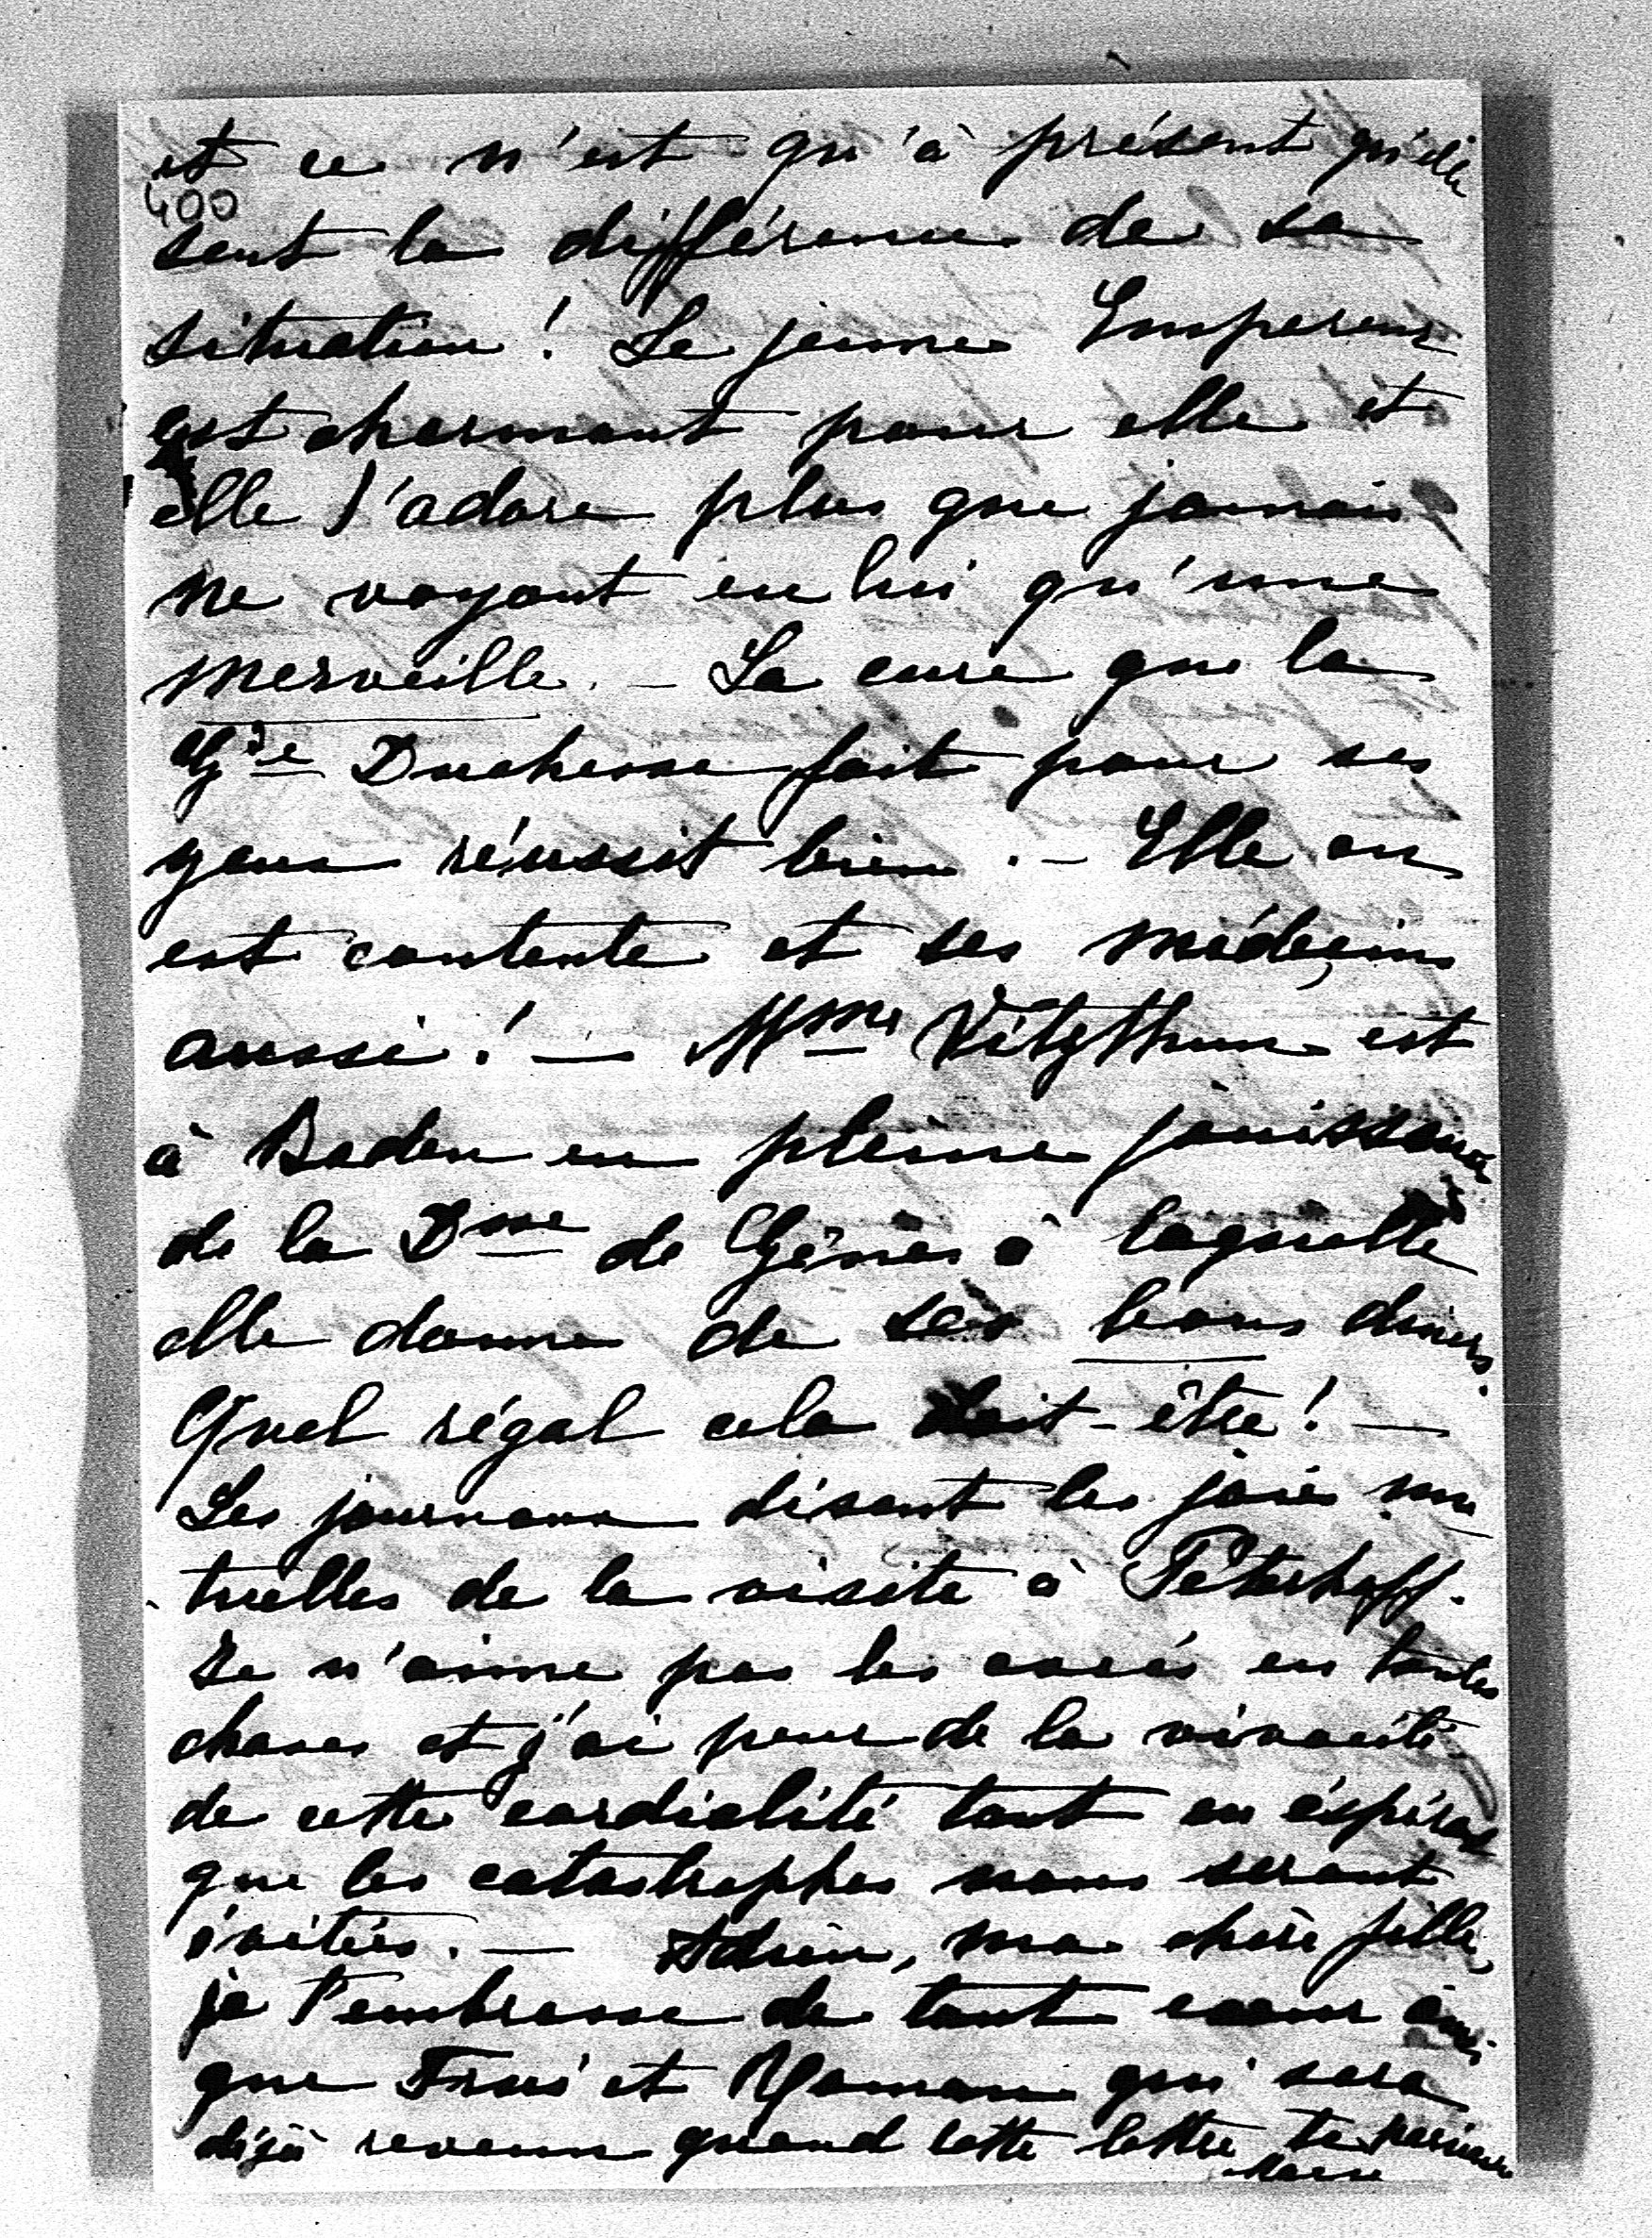 et ce n'est qu'à présent qu'elle
400
sent la différence de sa
situation! Le jeune Empereur
est charmant pour elle et
elle l'adore plus que jamais
ne voyant en lui qu'une
merveille. – La cure que la
Gde Duchesse fait pour ses
yeux réussit bien. – Elle en
est contente et ses médecins
aussi! – Mme Vitzthum est
à Baden en pleine jouissance
de la Dsse de Gênes à laquelle
elle donne de ses bons diners.
Quel régal cela doit-être! –
Les journaux disent les joies mu
tuelles de la visite à Péterhoff.
Je n'aime pas les excés en toutes
choses et j'ai peur de la vivacité
de cette cordialité tout en éspérant
que les catastrophes nous seront
évitées. – Adieu, ma chère fille,
je t'embrasse de tout coeur ainsi
que et qui sera
déjà revenu quand cette lettre te parviendra